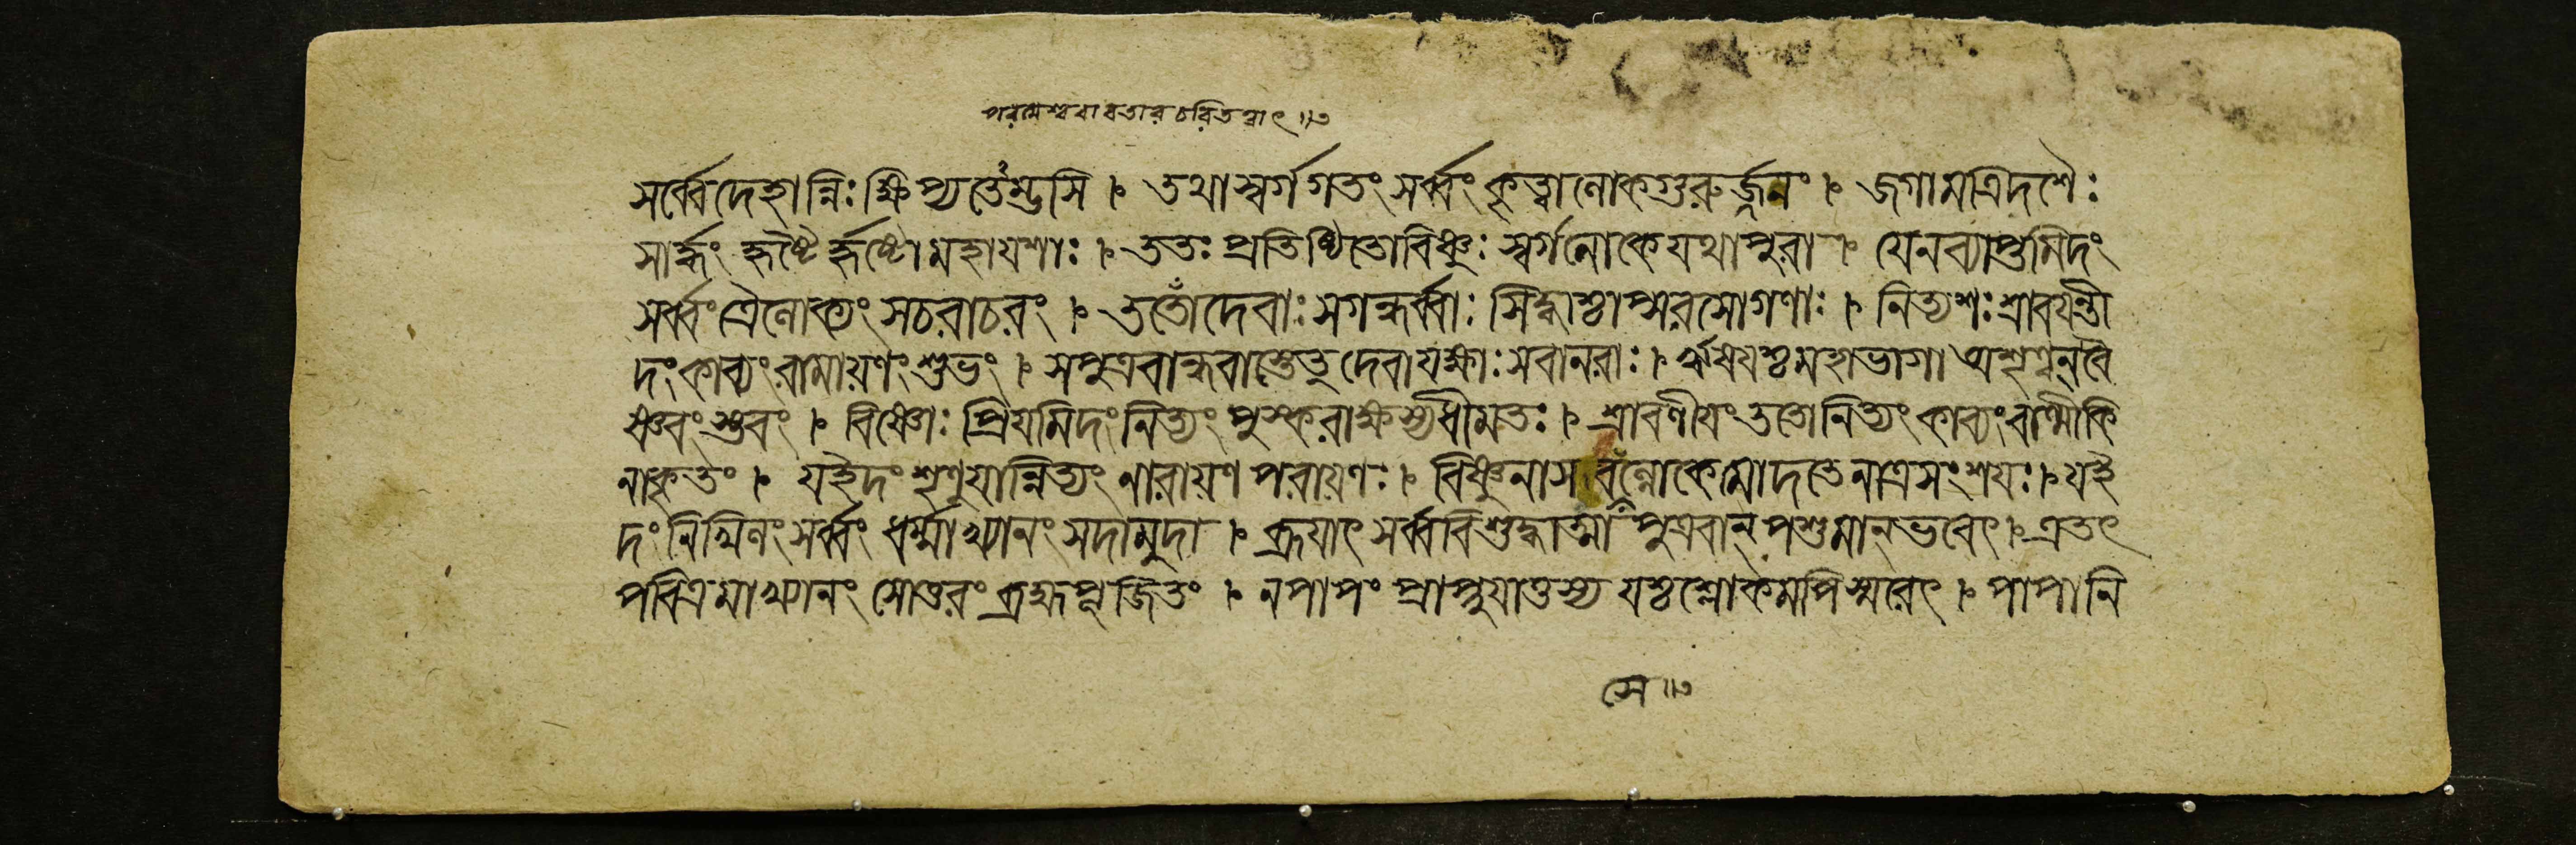 পরমেশ্বরাবতারচরিতত্বাৎ ॥৩
সর্ব্বেদেহান্নিঃক্ষিপ্যতেম্ভসি । তথাস্বর্গগতংসর্ব্বংকৃত্বালোকগুরুর্জ্জনং । জগামত্রিদশৈঃ
সার্দ্ধং হৃষ্টৈর্হৃষ্টোমহাযশাঃ । ততঃপ্রতিষ্ঠিতোবিষ্ণুঃস্বর্গলোকেযথাপুরা । যেনব্যাপ্তমিদং
সর্ব্বংত্রৈলোক্যংসচরাচরং । ততোঁদেবাঃসগন্ধর্ব্বাঃসিদ্ধাশ্চাপ্সরসোগণাঃ । নিত্যশঃশ্রাবয়ন্তী
দংকাব্যংরামায়ণংশুভং । সপুত্রবান্ধবাস্তেতুদেবাযক্ষাঃসবানরাঃ । ঋষয়শ্চমহাভাগাঅশৃণ্বন্বৈ
ষ্ণবংস্তবং । বিষ্ণোঃপ্রিয়মিদংনিত্যংপুস্করাক্ষস্যধীমতঃ । শ্রাবণীয়ংততোনিত্যংকাব্যংবাল্মীকি
নাকৃতং । যইদংশৃণুয়ান্নিত্যংণারায়ণপরায়ণঃ । বিষ্ণুনাস বঁল্লোকেমোদতেনাত্রসংশয়ঃ । যই
দংনিখিলংসর্ব্বংধর্ম্মাখ্যানংসদামুদা । ব্রূয়াৎসর্ব্ববিশুদ্ধাত্মাপুত্রবান্পশুমান্ভবেৎ । এতৎ
পবিত্রমাখ্যানংসোত্তরংব্রহ্মপূজিতং । নপাপংপ্রাপ্নুয়াত্তস্যযশ্চশ্লোকমপিস্মরেৎ । পাপানি
সে ॥৩